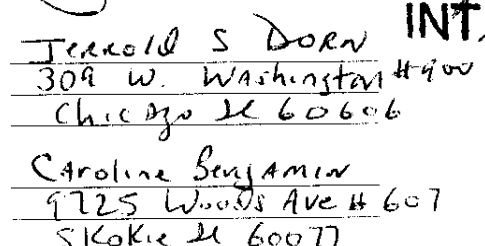 INT.
Jerrold S Dorn
309 W. Washington #900
Chicago Il 60606
Caroline Benjamin
9725 Woods Ave # 607
Skokie Il 60077